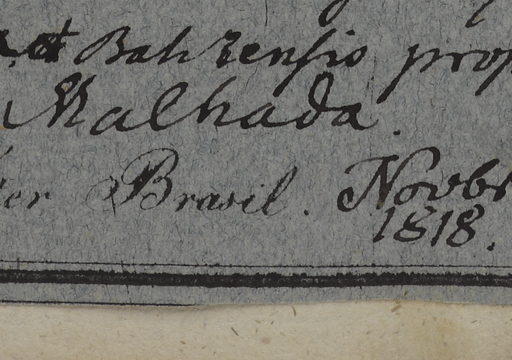 Bahrensis prop
Malhada.
ter Brasil. Novbr
1818.